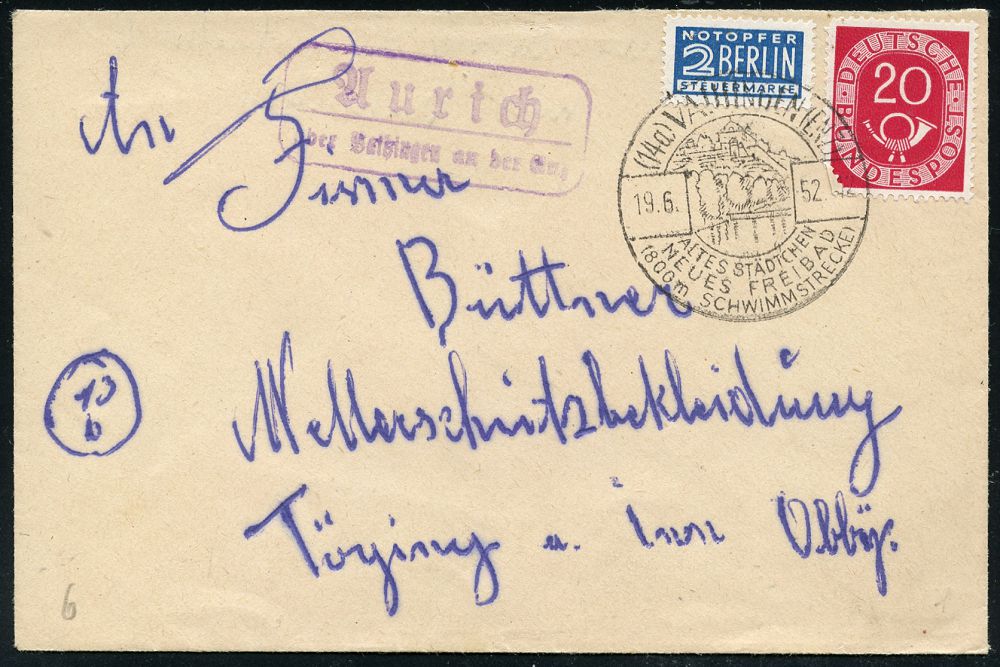 NOTOPFER
2 BERLIN
STEUERMARKE
DEUTSCHE BUNDESPOST
20
(14a) VAIHINGEN (ENZ)
19.6. 52.
ALTES STÄDTCHEN
NEUES FREIBAD
(800m SCHWIMMSTRECKE)
Aurich
über Vaihingen an der Enz
An
Firma
Büttner
Wetterschutzbekleidung
Töging a. Inn Obby.
13
b
6